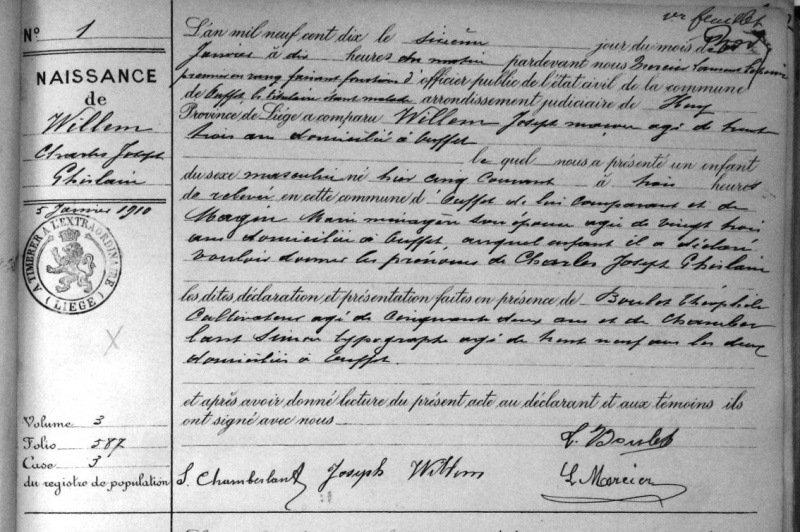 1er feuillet
N° 1
NAISSANCE
de
Willem
Charles Joseph
Ghislain
5 Janvier 1910
A TIMBRER A L'EXTRAORDINAIRE
(LIEGE)
X
Volume 3
Folio 587
Case 3
du registre de population
L'an mil neuf cent dix le sixième jour du mois de
Janvier à dix heures du matin pardevant nous Mercier Laurent
premier en rang faisant fonction d'officier public de l'état civil de la commune
de Ouffet le titulaire étant malade arrondissement judiciaire de Huy
Province de Liége a comparu Willem Joseph maçon agé de trente
trois ans domicilié à Ouffet
le quel nous a présenté un enfant
du sexe masculin né hier cinq courant à trois heures
de relevée en cette commune d'Ouffet de lui comparant et de
Magin Marie ménagère son épouse agée de vingt trois
ans domiciliée à Ouffet, auquel enfant il a déclaré
vouloir donner les prénoms de Charles Joseph Ghislain
les dites déclaration et présentation faites en présence de Boulet Théophile
Cultivateur agé de Cinquante deux ans et de Chamber
lant Simon typographe agé de trente neuf ans les deux
domiciliés à Ouffet.
et après avoir donné lecture du présent acte au déclarant et aux témoins ils
ont signé avec nous
T. Boulet
S. Chamberlant Joseph Willem L Mercier